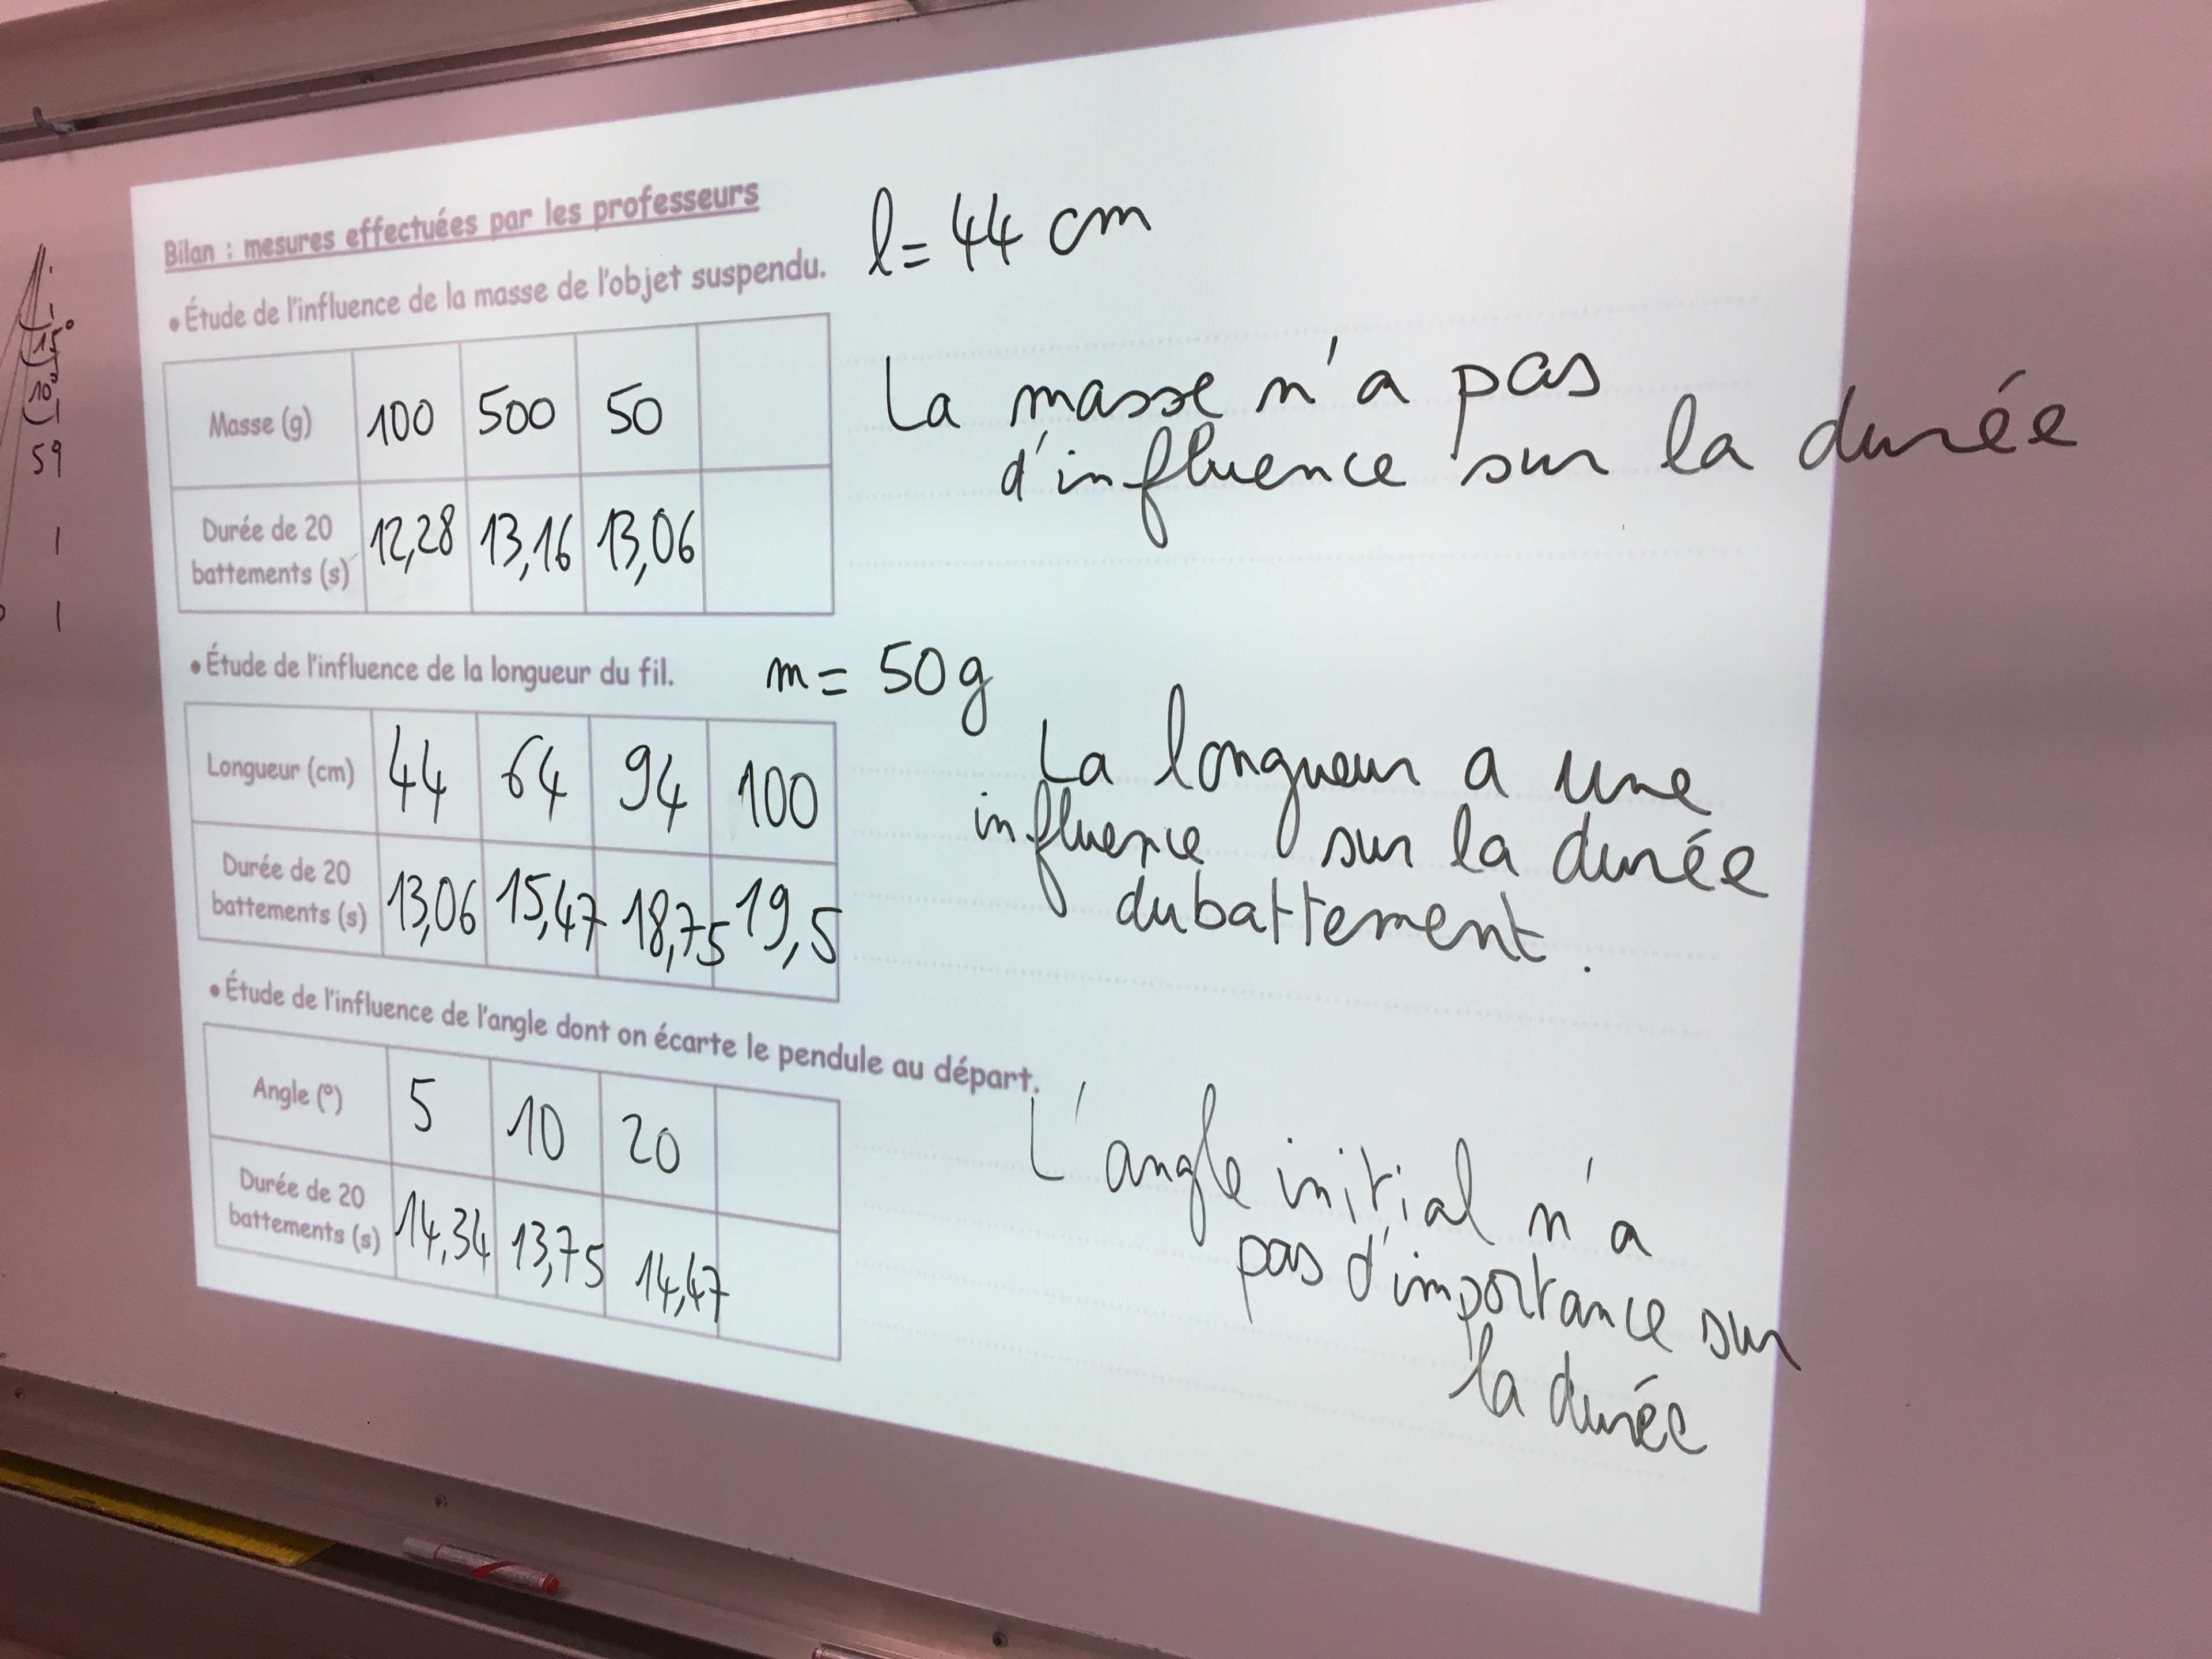 Bilan : mesures effectuées par les professeurs
l = 44 cm
• Étude de l'influence de la masse de l'objet suspendu.
Masse (g) 100 500 50
Durée de 20 battements (s) 12,28 13,16 13,06
La masse n'a pas
d'influence sur la durée
• Étude de l'influence de la longueur du fil.
m = 50g
Longueur (cm) 44 64 94 100
Durée de 20 battements (s) 13,06 15,47 18,75 19,5
La longueur a une
influence sur la durée
du battement.
• Étude de l'influence de l'angle dont on écarte le pendule au départ.
Angle (°) 5 10 20
Durée de 20 battements (s) 14,34 13,75 14,47
L'angle initial n'a
pas d'importance sur
la durée
15°
10°